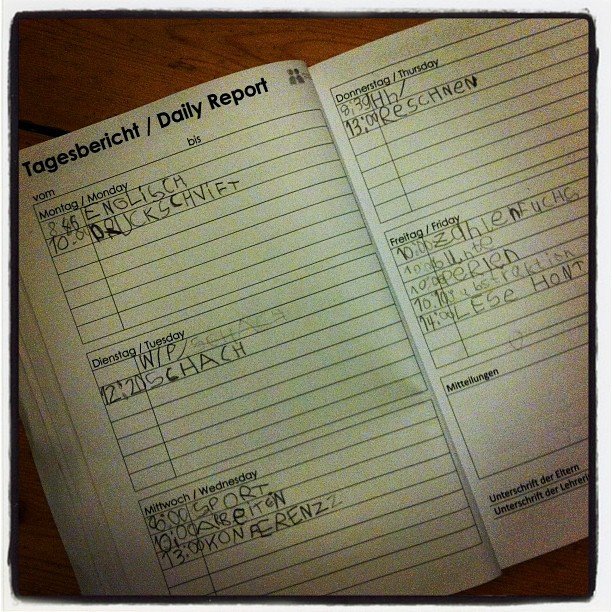 Tagesbericht / Daily Report
vom bis
Montag / Monday
ENGLISCH
DRUCKSCHVIFT
Dienstag / Tuesday
W/P/SCHACH
12:20 SCHACH
Mittwoch / Wednesday
SPORT
10:00 ARBEITEN
13:00 KONFÆRENZZ
Donnerstag / Thursday
8:30 Hh/
13:00 RESCHNEN
Freitag / Friday
10:00 zahlenFUCHS
bunte
PERLEN
10:10 subtraktion
14:00 LESE HONT
Mitteilungen
Unterschrift der Eltern
Unterschrift der Lehrer